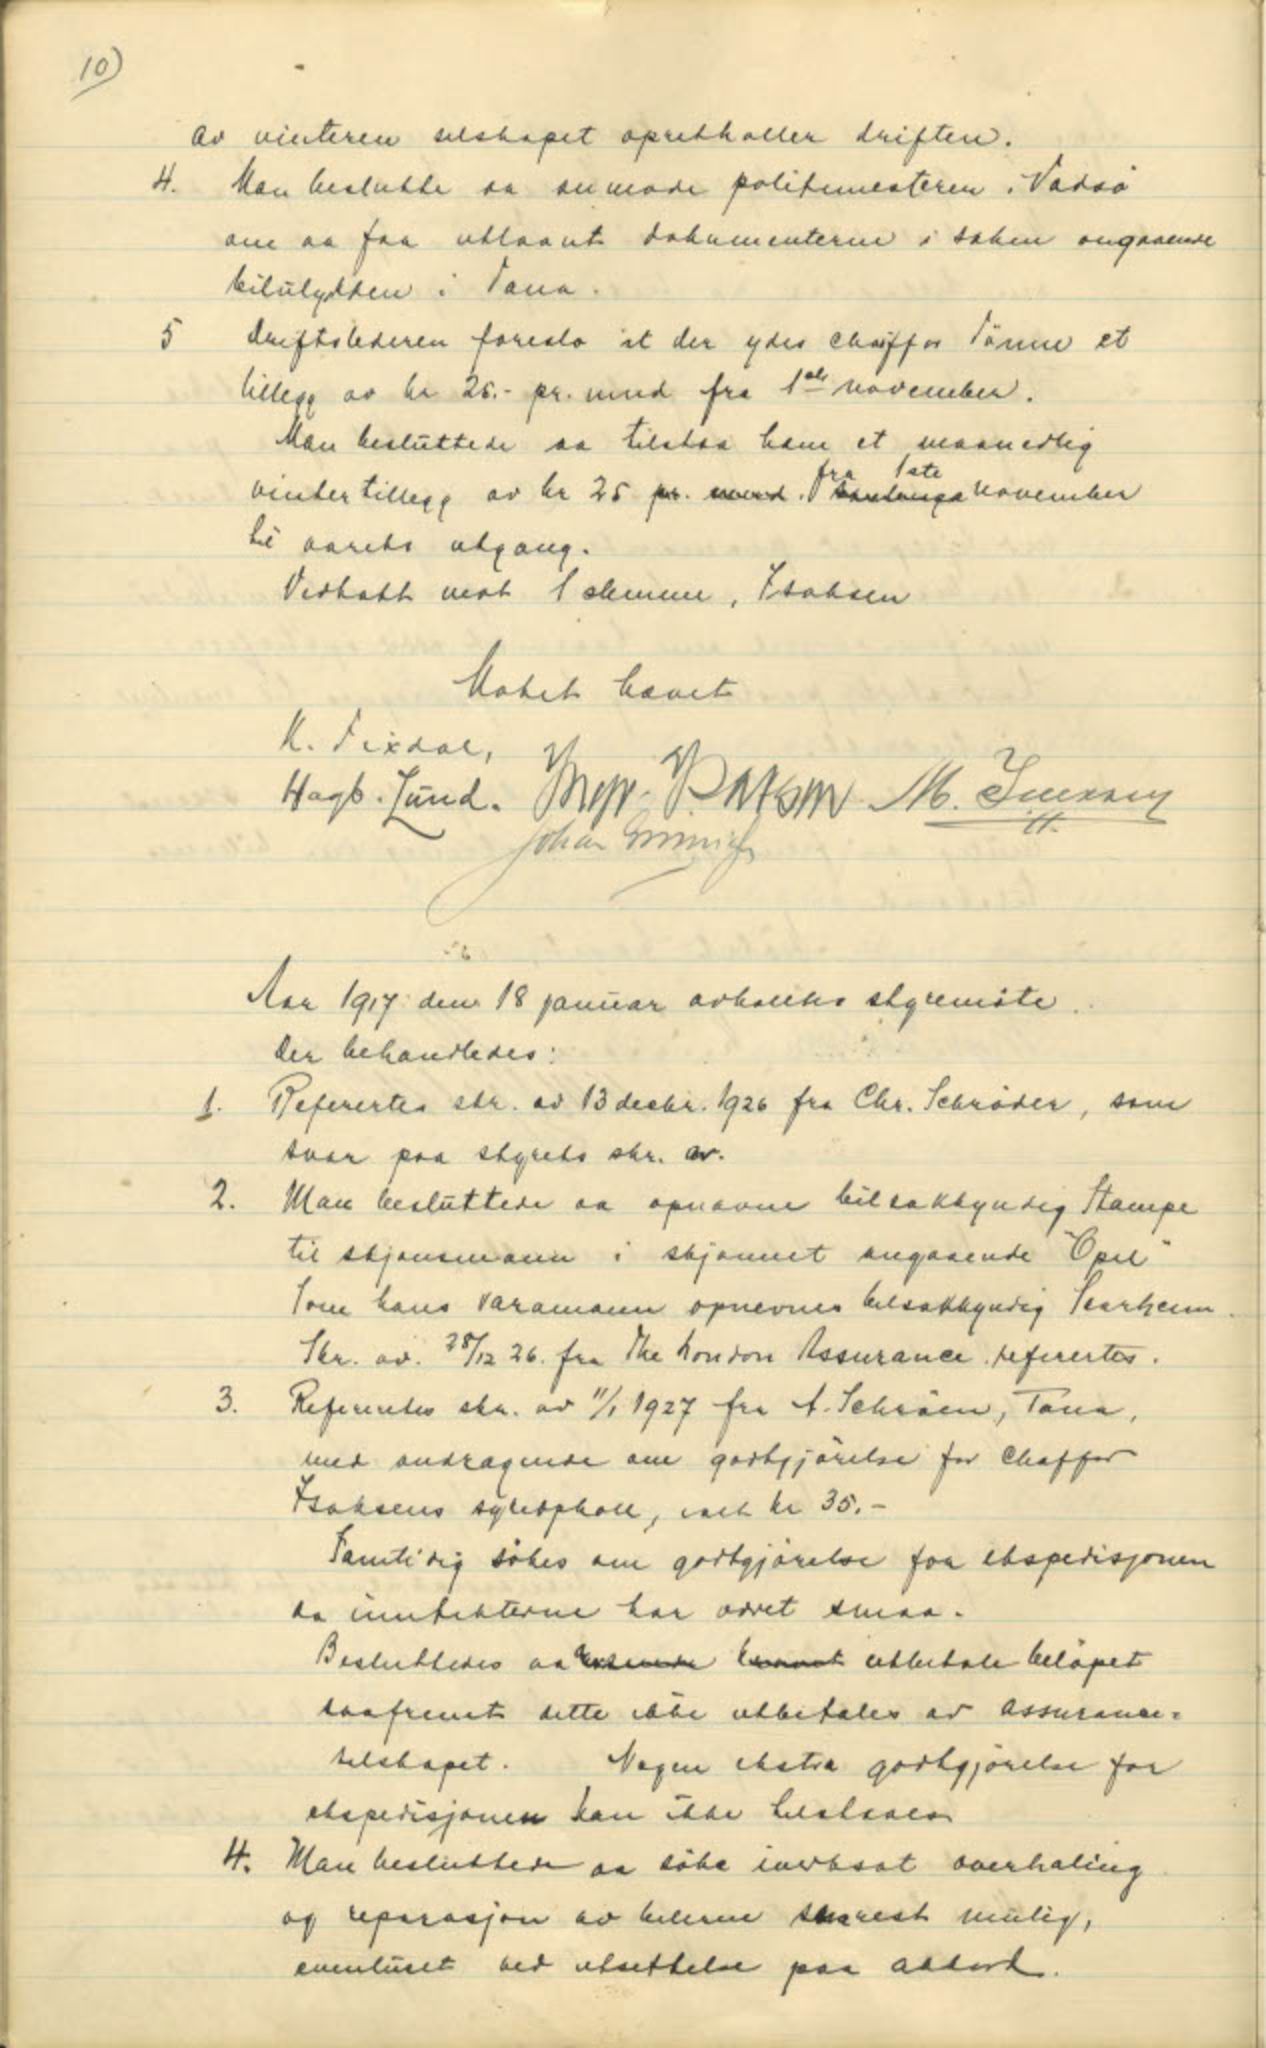 10)
av vinteren selskapet opretholler driften.
4. Man beslutte aa anmode politimesteren i Vadsö
om aa faa utlaant dokumenterne i saken angaaende
bilulykken i Tana.
5 Driftslederen foreslo at der ydes chaffør Tönne et
tillegg av kr 25.- pr. mnd fra 1ste november.
Man besluttede aa tilstaa ham et maanedlig
vintertillegg av kr 25 pr. mnd. fra 1ste november
til aarets utgang.
Vedtatt mot 1 stemme, Isaksen
Mötet hævet
K. Tixdal,
Hagb. Lund. M.
Johan
Aar 1917 den 18 januar avholdtes styremöte.
Der behandledes:
1. Referertes skr. av 13 decbr. 1926 fra Chr. Schröder, som
svar paa styrets skr. av.
2. Man besluttede aa opnævne bilsakkyndig Stampe
til skjönsmann i skjönnet angaaende "Opel"
Som hans varamann opnevnes bilsakkyndig
Skr. av. 28/12 26. fra The London Assurance refertes.
3. Referertes skr. av 11/1 1927 fra A. Schröen, Tana,
med andragende om godtgjörelse for chaffør
Isaksens sykeophold, ialt kr 35.-
Samtidig sökes om godtgjörelse for ekspedisjonen
da inntekterne har været smaa.
Besluttedes aa utbetale belöpet
saafremt dette ikke utbetales av assurance-
selskapet. Nogen ekstra godtgjörelse for
ekspedisjonen kan ikke tilstaaes
4. Man besluttede aa söke iverksat overhaling
og reparasjon av bilerne snarest mulig,
eventuelt ved utsettelse paa akkord.